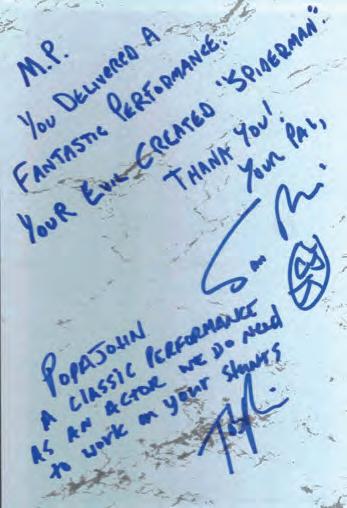 M.P.
YOU DELIVERED A
FANTASTIC PERFORMANCE.
YOUR EVIL CREATED "SPIDERMAN".
THANK YOU!
YOUR PAL,
Sam
POPAJOHN
A CLASSIC PERFORMANCE
AS AN ACTOR WE DO NEED
TO WORK ON YOUR STUNTS